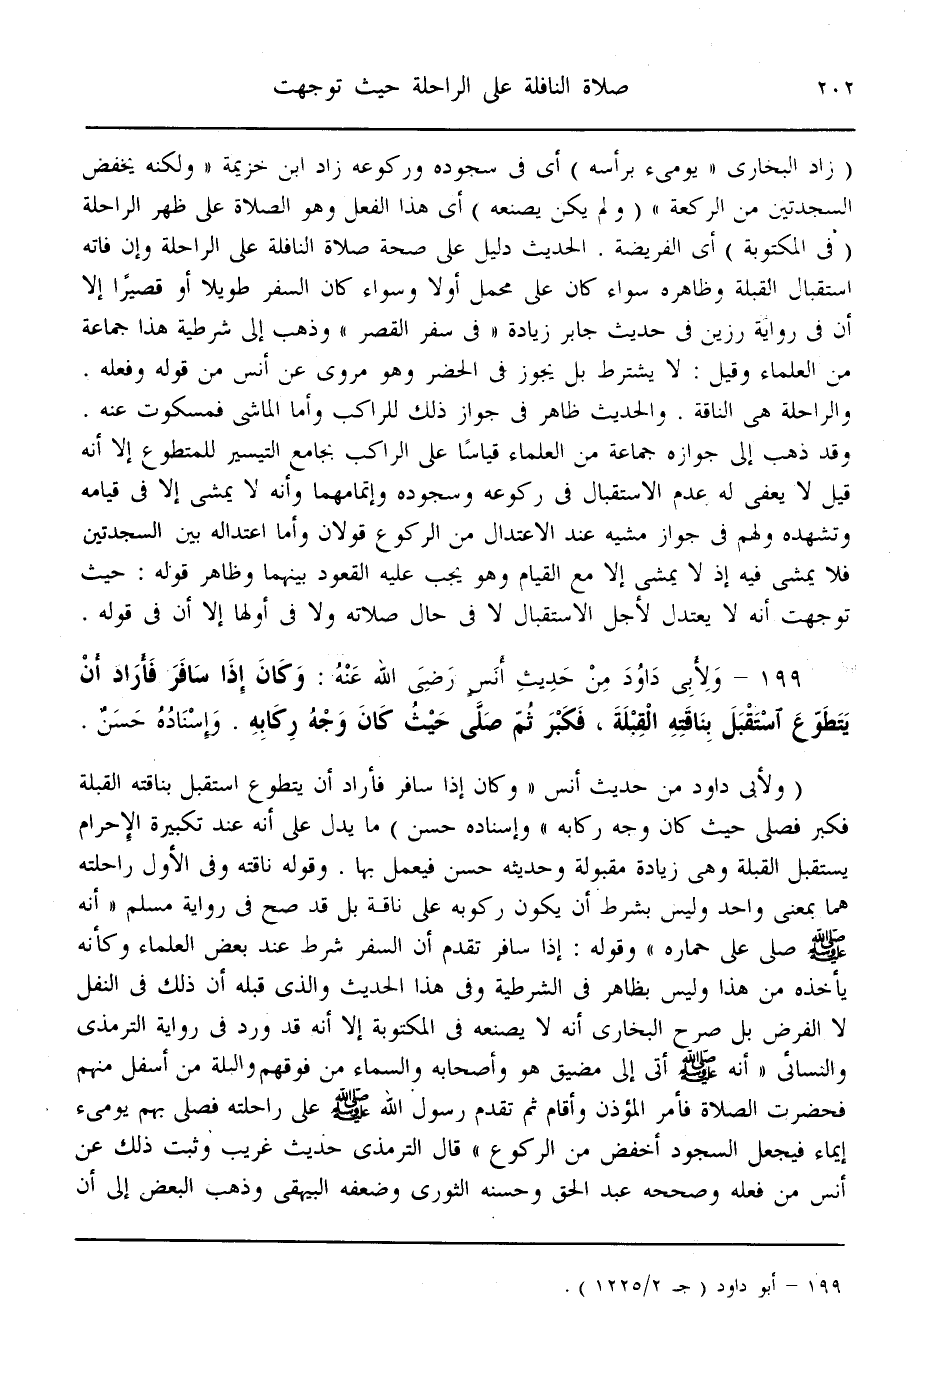 ٢٠٢ صلاة النافلة على الراحلة حيث توجهت
( زاد البخارى « يومىء برأسه ) أى فى سجوده وركوعه زاد ابن خزيمة « ولكنه يخفض
السجدتين من الركعة » ( ولم يكن يصنعه ) أى هذا الفعل وهو الصلاة على ظهر الراحلة
( فى المكتوبة ) أى الفريضة . الحديث دليل على صحة صلاة النافلة على الراحلة وإن فاته
استقبال القبلة وظاهره سواء كان على محمل أولا وسواء كان السفر طويلا أو قصيرًا إلا
أن فى رواية رزين فى حديث جابر زيادة « فى سفر القصر » وذهب إلى شرطية هذا جماعة
من العلماء وقيل : لا يشترط بل يجوز فى الحضر وهو مروى عن أنس من قوله وفعله .
والراحلة هى الناقة . والحديث ظاهر فى جواز ذلك للراكب وأما الماشى فمسكوت عنه .
وقد ذهب إلى جوازه جماعة من العلماء قياسًا على الراكب بجامع التيسير للمتطوع إلا أنه
قيل لا يعفى له عدم الاستقبال فى ركوعه وسجوده وإتمامهما وأنه لا يمشى إلا فى قيامه
وتشهده ولهم فى جواز مشيه عند الاعتدال من الركوع قولان وأما اعتداله بين السجدتين
فلا يمشى فيه إذ لا يمشى إلا مع القيام وهو يجب عليه القعود بينهما وظاهر قوله : حيث
توجهت أنه لا يعتدل لأجل الاستقبال لا فى حال صلاته ولا فى أولها إلا أن فى قوله .
١٩٩ – وَلِأَبِى دَاوُدَ مِنْ حَدِيثِ أَنَسٍ رَضِىَ اللهُ عَنْهُ : وَكَانَ إِذَا سَافَرَ فَأَرَادَ أَنْ
يَتَطَوَّعَ اسْتَقْبَلَ بِنَاقَتِهِ الْقِبْلَةَ ، فَكَبَّرَ ثُمَّ صَلَّى حَيْثُ كَانَ وَجْهُ رِكَابِهِ . وَإِسْنَادُهُ حَسَنٌ .
( ولأبى داود من حديث أنس « وكان إذا سافر فأراد أن يتطوع استقبل بناقته القبلة
فكبر فصلى حيث كان وجه ركابه » وإسناده حسن ) ما يدل على أنه عند تكبيرة الإحرام
يستقبل القبلة وهى زيادة مقبولة وحديثه حسن فيعمل بها . وقوله ناقته وفى الأول راحلته
هما بمعنى واحد وليس بشرط أن يكون ركوبه على ناقة بل قد صح فى رواية مسلم « أنه
ﷺ صلى على حماره » وقوله : إذا سافر تقدم أن السفر شرط عند بعض العلماء وكأنه
يأخذه من هذا وليس بظاهر فى الشرطية وفى هذا الحديث والذى قبله أن ذلك فى النفل
لا الفرض بل صرح البخارى أنه لا يصنعه فى المكتوبة إلا أنه قد ورد فى رواية الترمذى
والنسائى « أنه ﷺ أتى إلى مضيق هو وأصحابه والسماء من فوقهم والبلة من أسفل منهم
فحضرت الصلاة فأمر المؤذن وأقام ثم تقدم رسول الله ﷺ على راحلته فصلى بهم يومىء
إيماء فيجعل السجود أخفض من الركوع » قال الترمذى حديث غريب وثبت ذلك عن
أنس من فعله وصححه عبد الحق وحسنه الثورى وضعفه البيهقى وذهب البعض إلى أن
١٩٩ – أبو داود ( جـ ١٢٢٥/٢ ) .